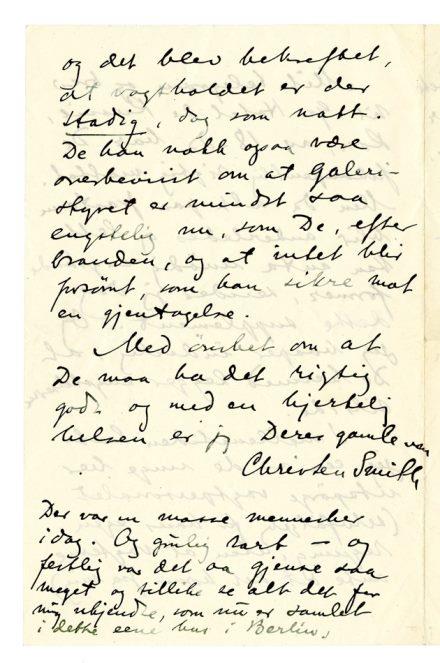 og det blev bekreftet,
at vagtholdet er der
stadig, dag som natt.
De kan nokk ogsaa være
overbevist om at Galeri-
styret er mindst saa
engstelig nu, som De, efter
branden, og at intet blir
forsømt, som kan sikre mot
en gjentagelse.
Med ønsket om at
De maa ha det rigtig
godt og med en hjertelig
hilsen er jeg Deres gamle ven
Christen Smith
Der var en masse mennesker
idag. Og rart – og
festlig var det aa gjense saa
meget og tillike se alt det for
mig ukjendte, som nu er samlet
i dette ene hus i Berlin.